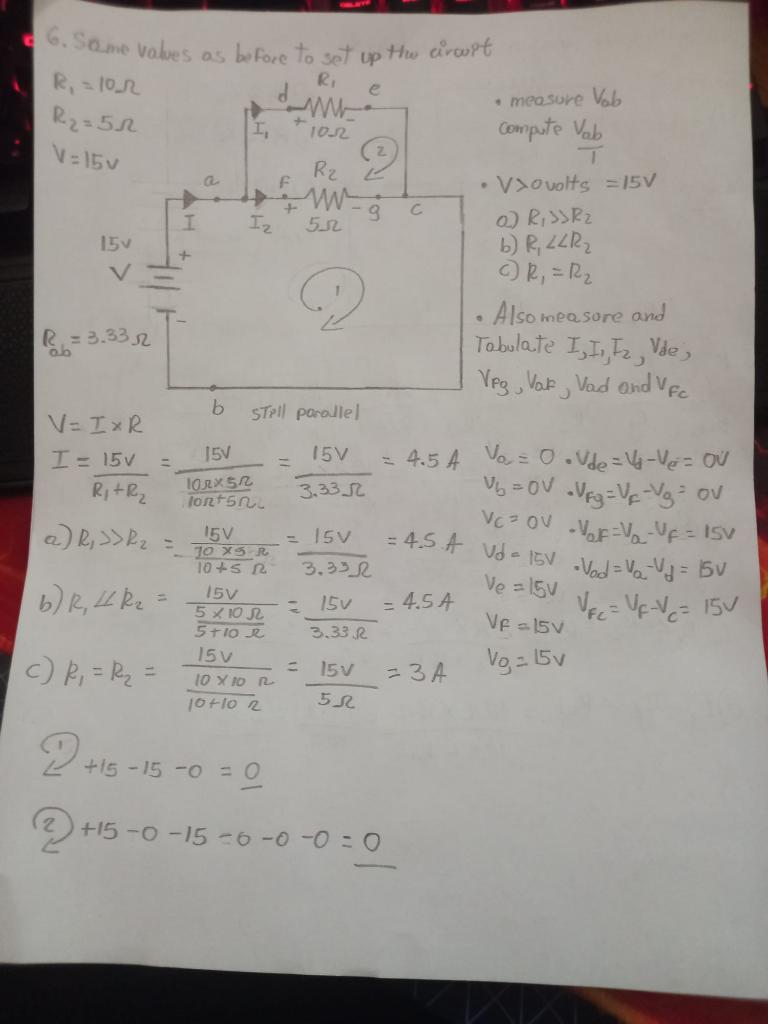 6. Same values as before to set up the circuit
R₁ = 10Ω
R₂ = 5Ω
V = 15V
d R₁ e
+ 10Ω -
I₁
2
a
I
f R₂ g c
+ 5Ω -
I₂
15V
V
+
-
1
Rab = 3.33Ω
b still parallel
• measure Vab
compute Vab/I
• V>0volts = 15V
a) R₁>>R₂
b) R₁<<R₂
c) R₁ = R₂
• Also measure and
Tabulate I, I₁, I₂, Vde,
Vfg, Vaf, Vad and Vfc
V = I x R
I = 15V/R₁+R₂ = 15V/(10Ω x 5Ω/10Ω+5Ω) = 15V/3.33Ω = 4.5 A
a) R₁>>R₂ = 15V/(10 x 5 Ω/10+5 Ω) = 15V/3.33Ω = 4.5 A
b) R₁<<R₂ = 15V/(5 x 10Ω/5+10Ω) = 15V/3.33Ω = 4.5A
c) R₁ = R₂ = 15V/(10 x 10 Ω/10+10 Ω) = 15V/5Ω = 3A
Va = 0 • Vde = Vd-Ve = 0V
Vb = 0V • Vfg = Vf-Vg = 0V
Vc = 0V • Vaf = Va-Vf = 15V
Vd = 15V • Vad = Va-Vd = 15V
Ve = 15V Vfc = Vf-Vc = 15V
Vf = 15V
Vg = 15V
1 +15 -15 -0 = 0
2 +15 -0 -15 -0 -0 -0 = 0